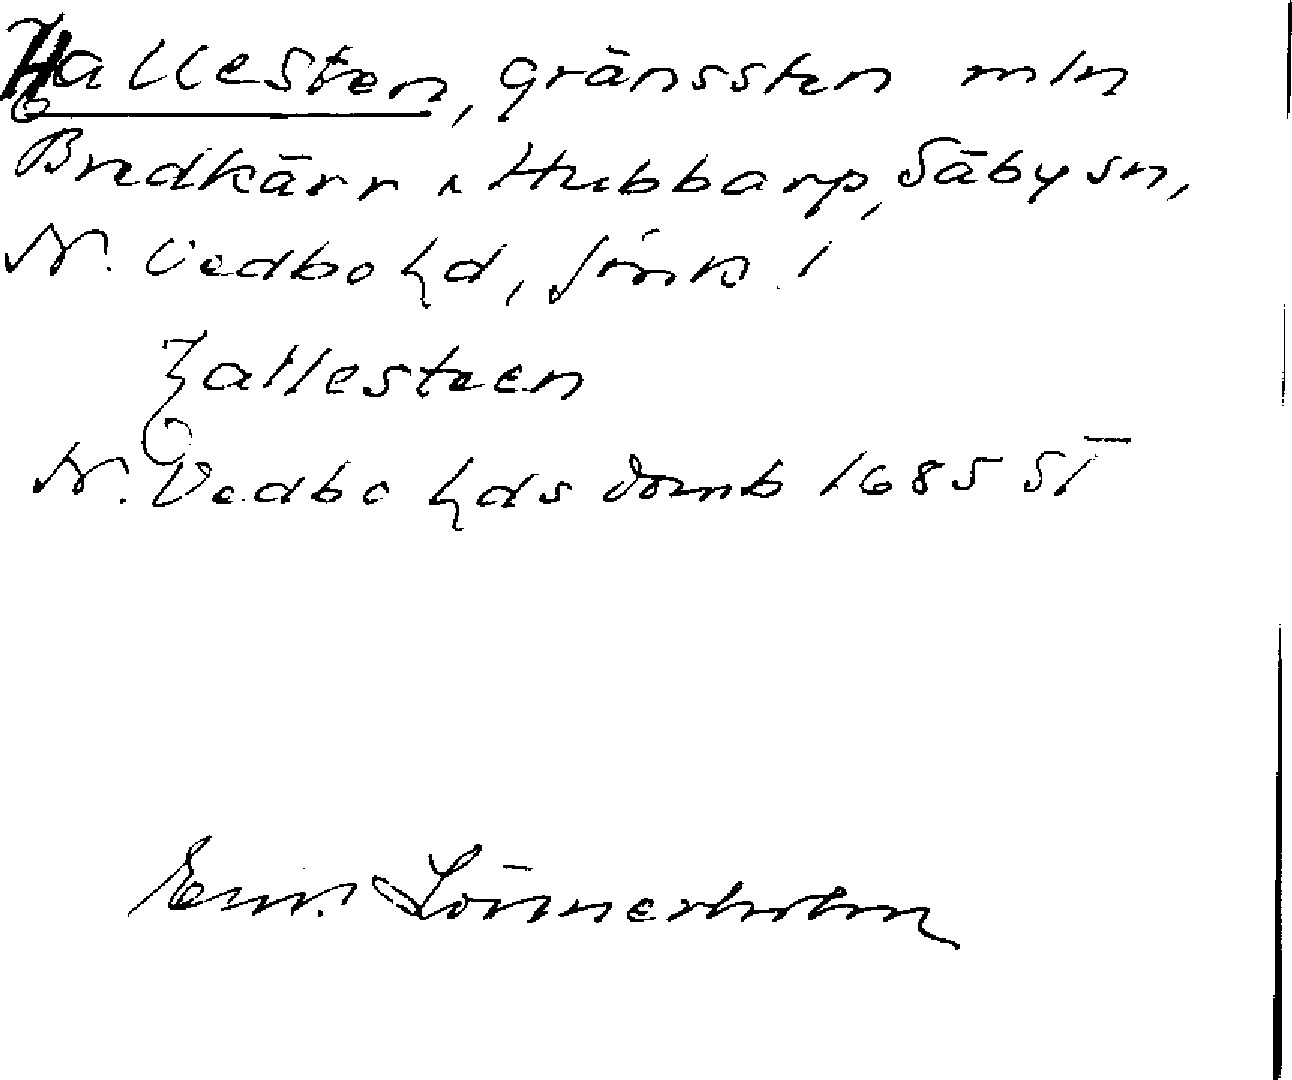 Hallesten, gränssten mln
Bredkärr o Hubbarp, Säby sn,
N. Vedbo hd, Jönk. l
Hallesteen
N. Vedbo hds domb 1685 ST
Em. Lönnerholm